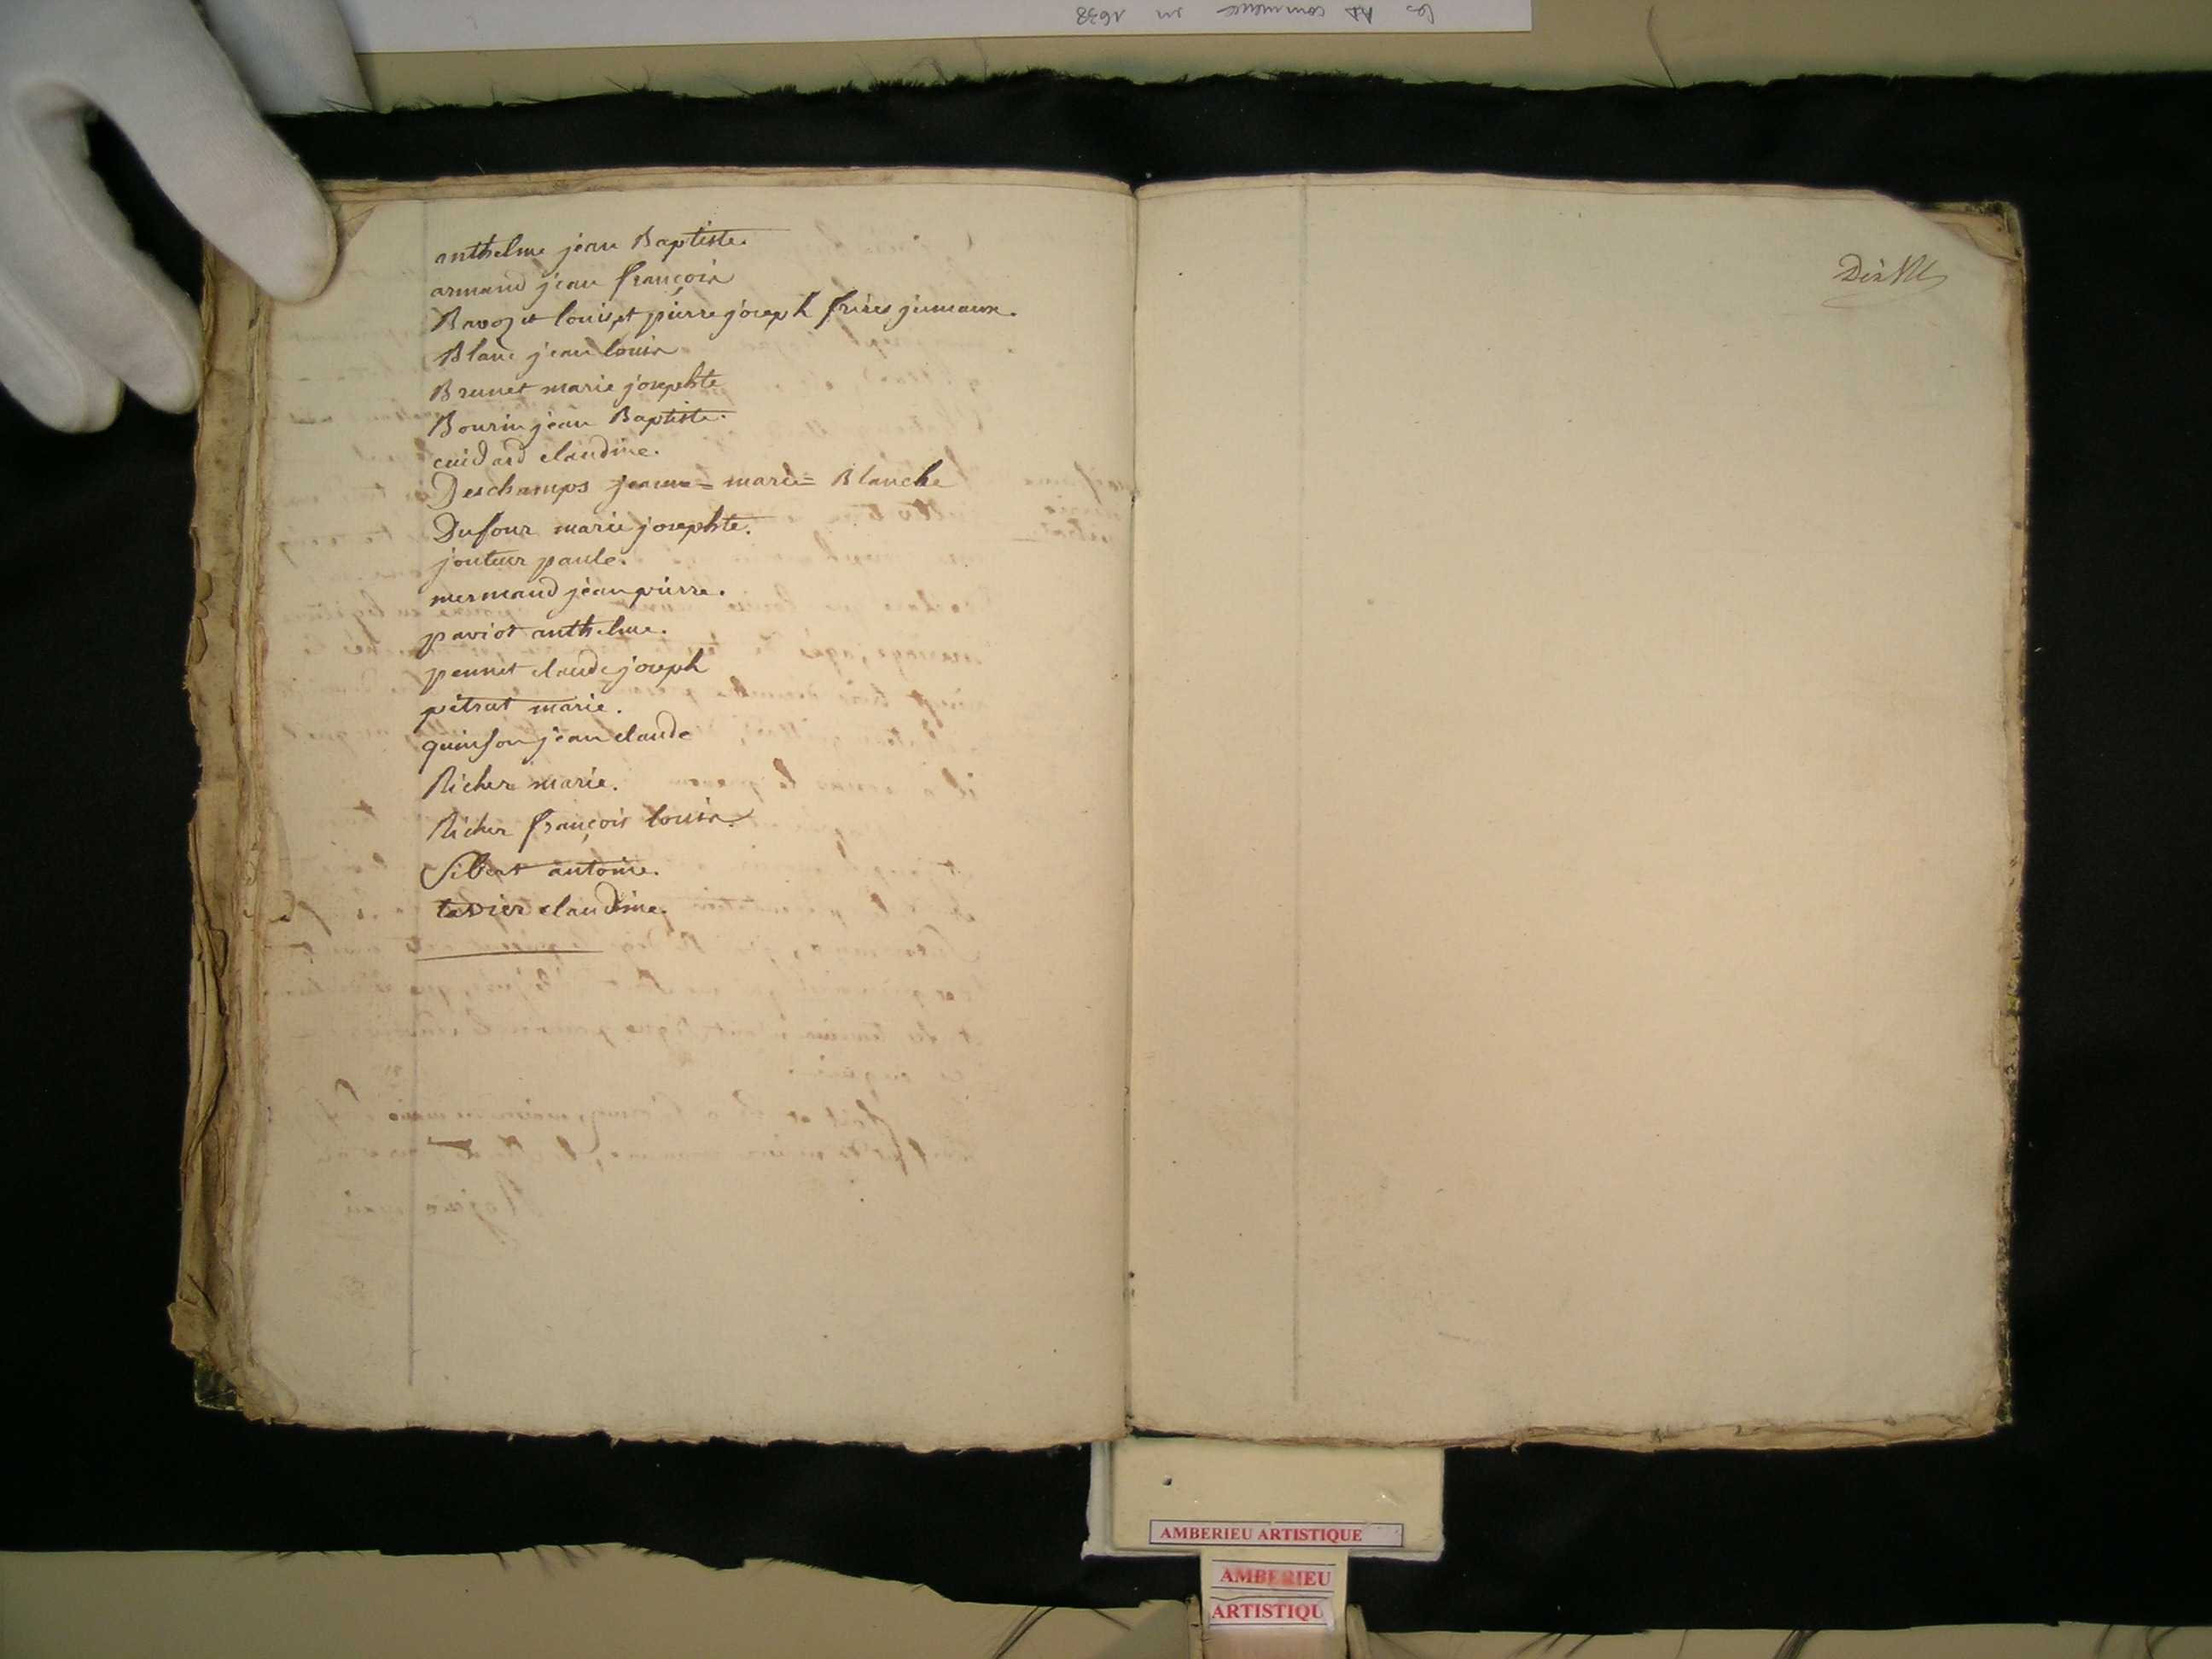 les AD commence en 1638
anthelme jean Baptiste.
armand jean françois
Bavozet louis et pierre joseph frères jumeaux.
Blanc jean louis
Brunet marie josephte
Bourin jean Baptiste.
cuidard claudine.
Deschamps jeanne = marie = Blanche
Dufour marie josephte.
jouteur paule.
mermand jean pierre.
paviot anthelme.
pennet claude joseph
pétrat marie.
quinson jean claude
Richer marie.
Richer françois louis.
Sibert antoine.
tavier claudine.
AMBERIEU ARTISTIQUE
AMBERIEU
ARTISTIQU